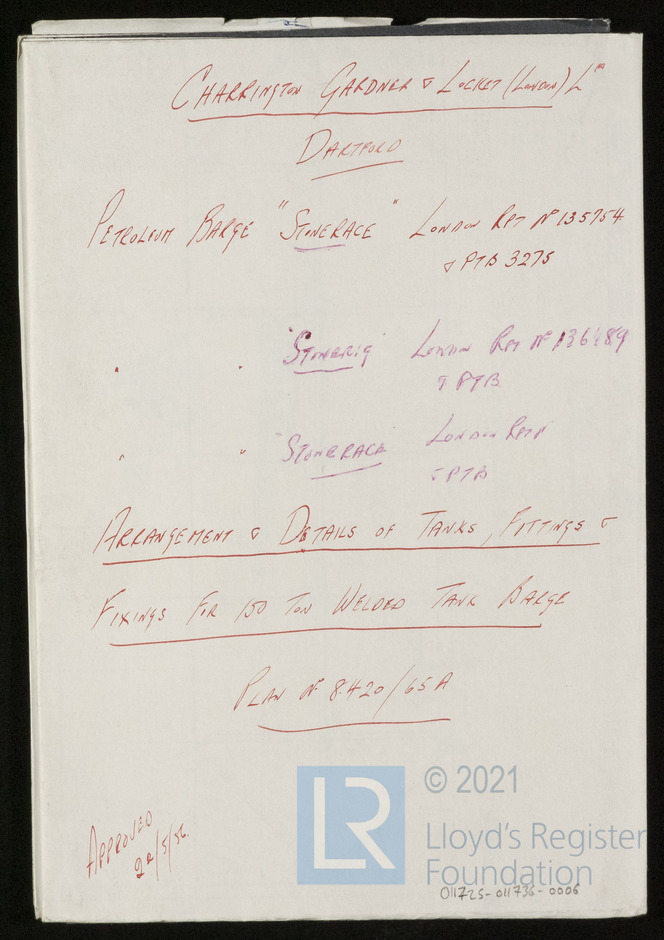 Charrington Gardner & Locket (London) Ltd
Dartford
Petroleum Barge "Stonerace" London Rpt No 135754
& PTB 3275
" " "Stonerig" London Rpt No 136489
& PTB
" " "Stonerace" London Rpt No
& PTB
Arrangement & Details of Tanks, Fittings &
Fixings for 150 Ton Welded Tank Barge
Plan No 8420/65A
Approved
22/5/56.
LR
© 2021
Lloyd's Register
Foundation
011725-011736-0006